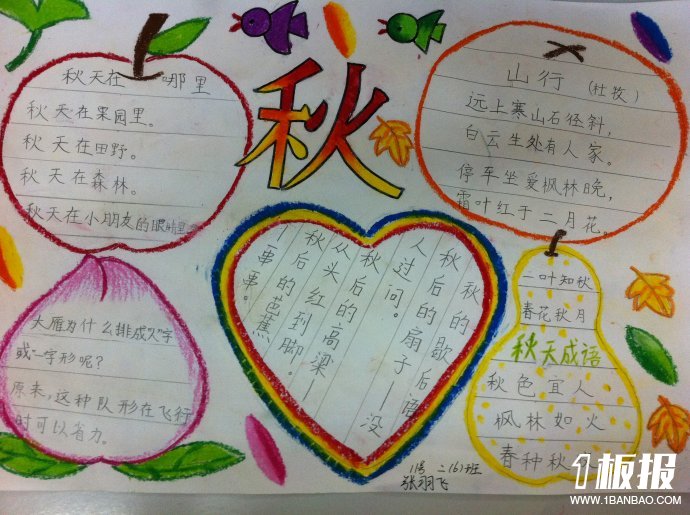 秋
秋天在哪里
秋天在果园里。
秋天在田野。
秋天在森林。
秋天在小朋友的眼睛里
山行（杜牧）
远上寒山石径斜，
白云生处有人家。
停车坐爱枫林晚，
霜叶红于二月花。
大雁为什么排成人字
或一字形呢？
原来，这种队形在飞行
时可以省力。
秋的歇后语
秋后的扇子—没
人过问。
秋后的高粱—
从头红到脚。
秋后的芭蕉
一串一串。
一叶知秋
春花秋月
秋天成语
秋色宜人
枫林如火
春种秋
11号 二(6)班
张翔飞
1板报
WWW.1BANBAO.COM